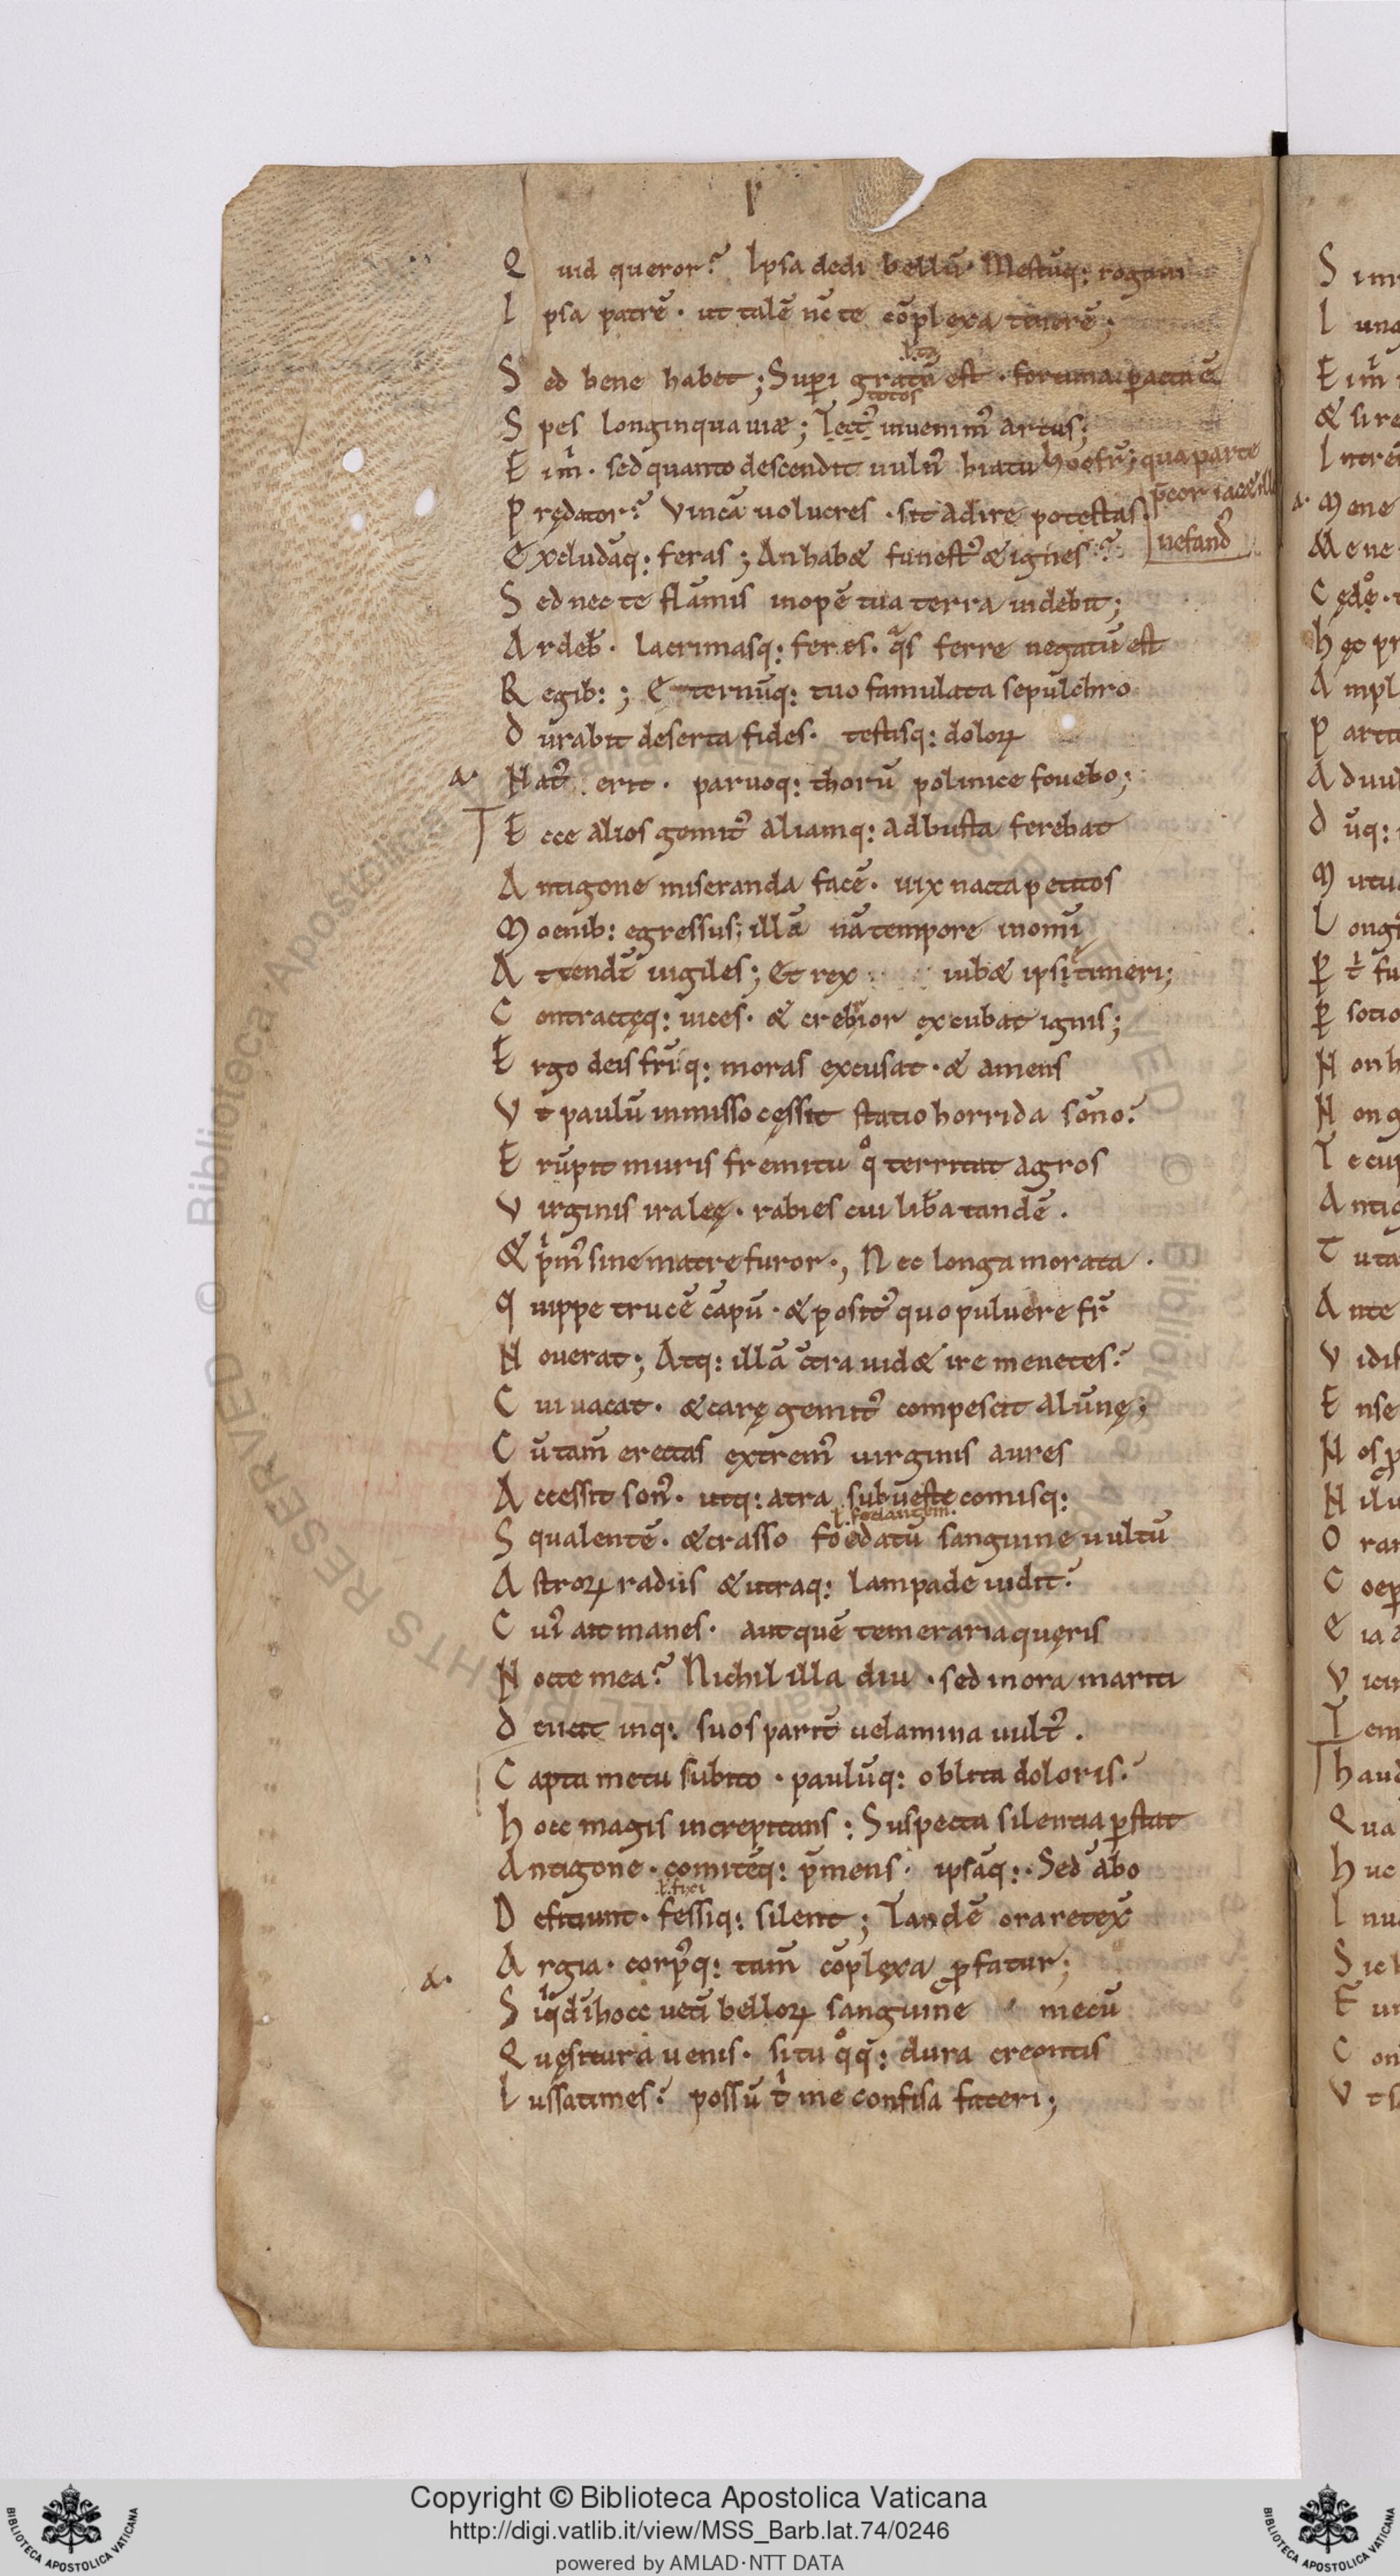 Q uid queror? Ipsa dedi bellũ· Mestũq: rogaui
I psa patrẽ· ut talẽ nc̄ te cõplexa tenerẽ;
S ed bene habet; Supi gratũ est· fortuna· pacta ẽ
.l.ta
totos
S pes longinqua uiæ; Tect᷒ inuenim᷒ artus;
E im̃· sed quanto descendit uuln᷒ hiatu hoc fr̃; qua parte
p̄cor iac& ille
nefand᷒
P rędator? Vincã uolucres · sit adire potestas
E xcludãq: feras; An hab& funest᷒ & ignes?
S ed nec te flãmis inopẽ tua terra uidebit;
A rdeb̃· lacrimasq: feres· q̃s ferre negatũ est
R egib:; E ternũq: tuo famulata sepulchro
D urabit deserta fides· testisq: doloꝝ
a· N at᷒ erit· paruoq: thorũ polinice fouebo;
E cce alios gemit᷒ aliamq: ad busta ferebat
A ntigone miseranda facẽ· uix nacta petitos
M oenib: egressus; illã nã tempore inomi
A ttend̃t uigiles; Et rex iub& ipsi timeri;
C ontractęq: uices· & crebrior excubat ignis;
E rgo deis fr̃iq: moras excusat· & amens
V t paulũ inmisso cęssit statio horrida sono?
E rupit muris fremitu qͦ territat agros
V irginis iraleę· rabies cui lib̃a tandẽ ·
& p̍m᷒ sine matre furor·, Nec longa morata ·
q uippe trucẽ cãpũ· & posit᷒ quo puluere fr̃
N ouerat; Atq: illã c̃tra uid& ire menetes?
C ui uacat· & carę gemit᷒ compescit alũnę;
C ũ tam̃ erectas extrem᷒ uirginis aures
A ccessit son᷒· utq: atra sub ueste comisq:
S qualentẽ· & crasso foedatũ sanguine uultũ
A stroꝝ radiis & utraq: lampade uidit?
C ui᷒ ait manes· aut quẽ temeraria quęris
N octe mea? Nichil illa diu · sed inora mariti
D eucit inq: suos parit᷒ uelamina uult᷒ ·
C apta metu subito · paulũq: oblita doloris?
h occ magis increpitans: Suspecta silentia ꝑstat
Antigone· comitẽq: p̃mens· ipsãq:· Sed abo
D eficiunt· fessiq: silent; Tandẽ ora retex̃
.l.fixi
a· A rgia· corp᷒q: tam̃ cõplexa ꝓfatur;
S iq̍d ĩ hocc uet̃i belloꝝ sanguine mecũ
Q uęsitura uenis· si tu qͦq: dura creontis
I ussa times? possũ t̍ me confisa fateri;
Copyright © Biblioteca Apostolica Vaticana
http://digi.vatlib.it/view/MSS_Barb.lat.74/0246
powered by AMLAD·NTT DATA